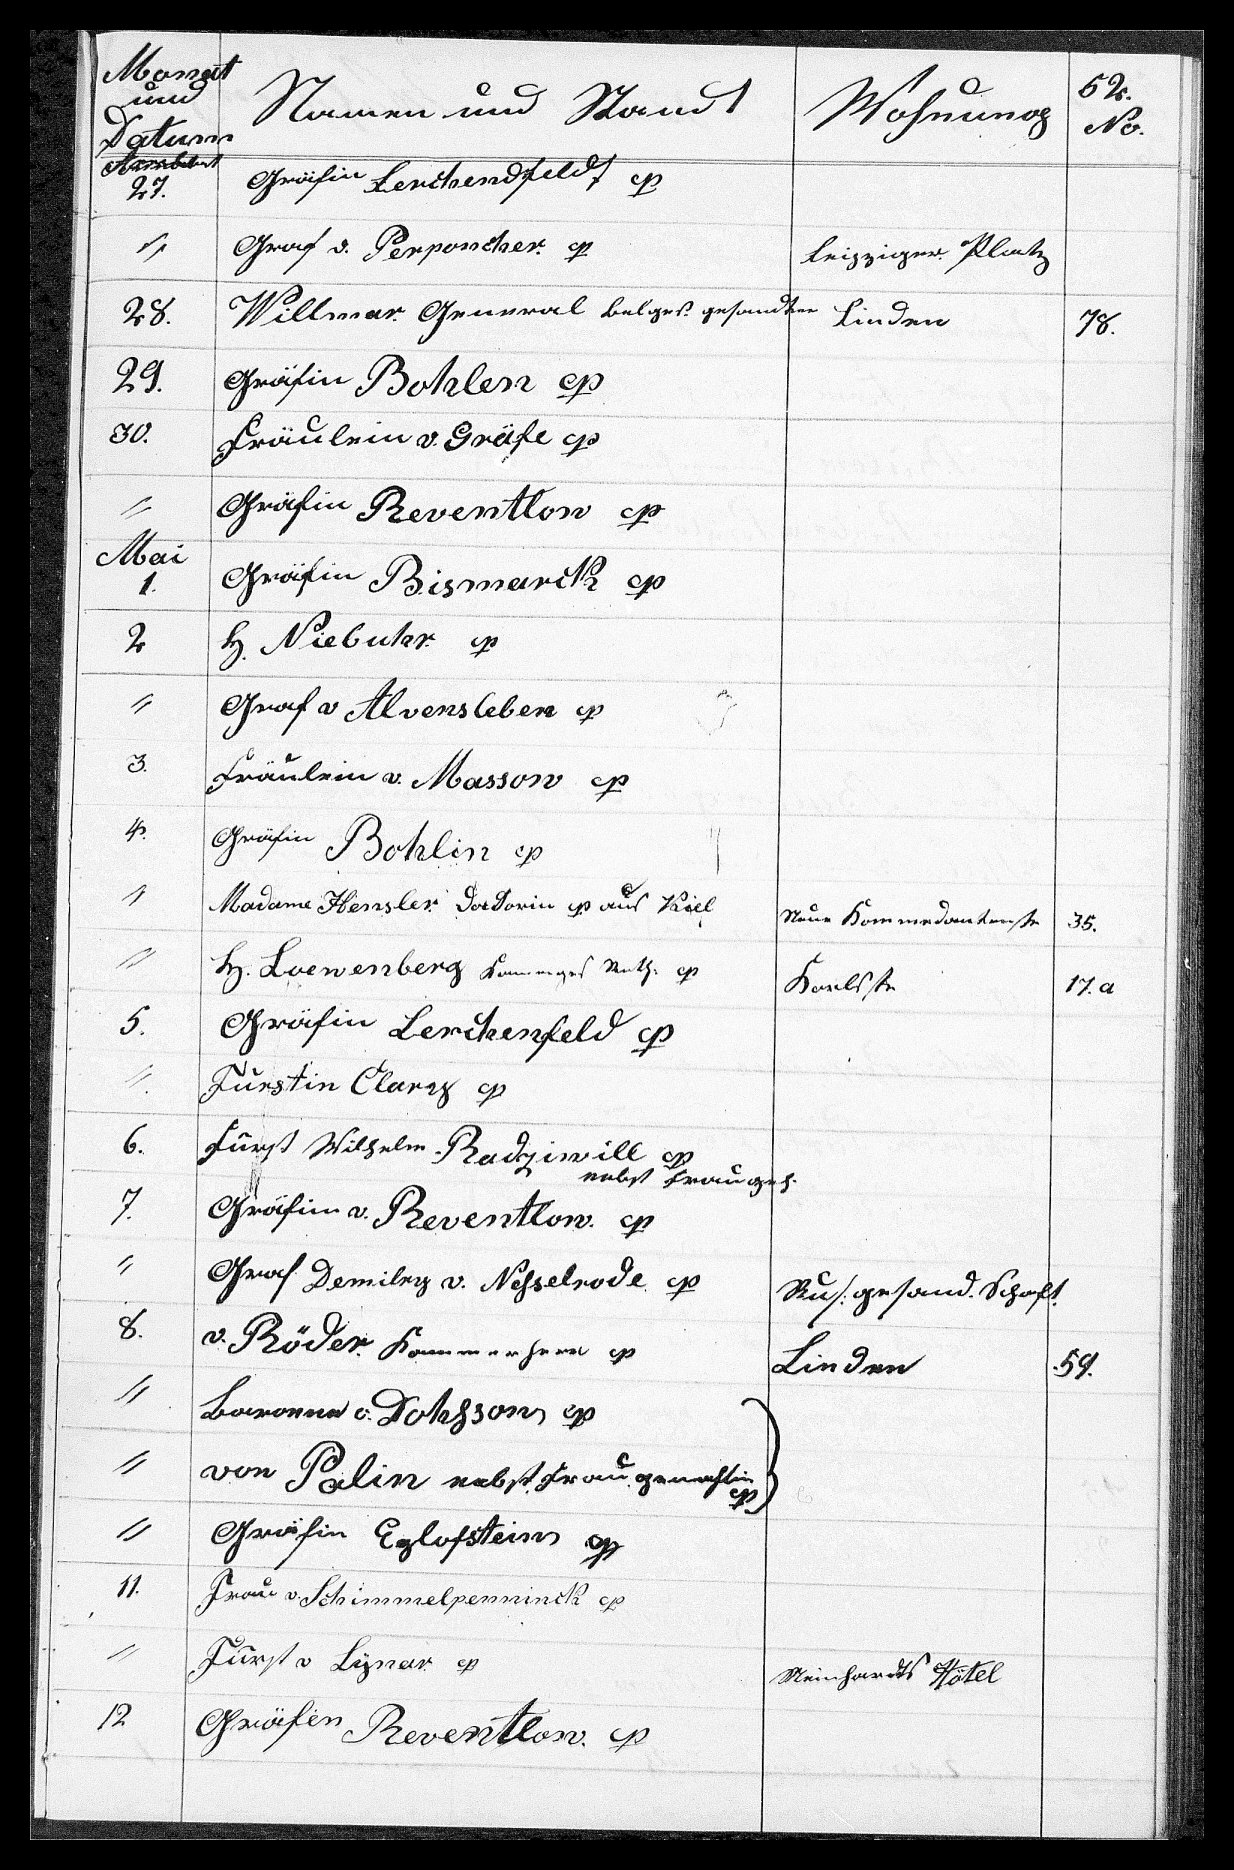 Monat und Datum | Namen und Stand | Wohnung | 52. No.
27. Gräfin Lerchendfeldt cp
" Graf v. Perponcher. cp Leipziger Platz
28. Willmar. General belges. gesandter Linden 78.
29. Gräfin Bohlen cp
30. Fräulein v. Gräfe cp
" Gräfin Reventlow cp
Mai
1. Gräfin Bismarck cp
2 H. Niebuhr. cp
" Graf v Alvensleben cp
3. Fräulein v. Massow cp
4. Gräfin Bohlin cp
" Madame Hensler. Doctorin cp aus Kiel Neue Kommedantenstr 35.
" H. Loewenberg Kammges Rath. cp Karlsstr 17. a
5. Gräfin Lerchenfeld cp
" Fürstin Clary cp
6. Fürst Wilhelm Radziwill cp
nebst Frau gem.
7. Gräfin v. Reventlow. cp
" Graf v. Nesselrode cp Rus. gesand. Schaft.
8. v. Röder. Kammerherr cp Linden 59.
" Baronne cp
" von Palin nebst Frau gemahlin cp
" Gräfin Eglofstein cp
11. Frau v Schimmelpenninck cp
" Fürst v Lynar. cp Meinhardts Hôtel
12 Gräfin Reventlow. cp